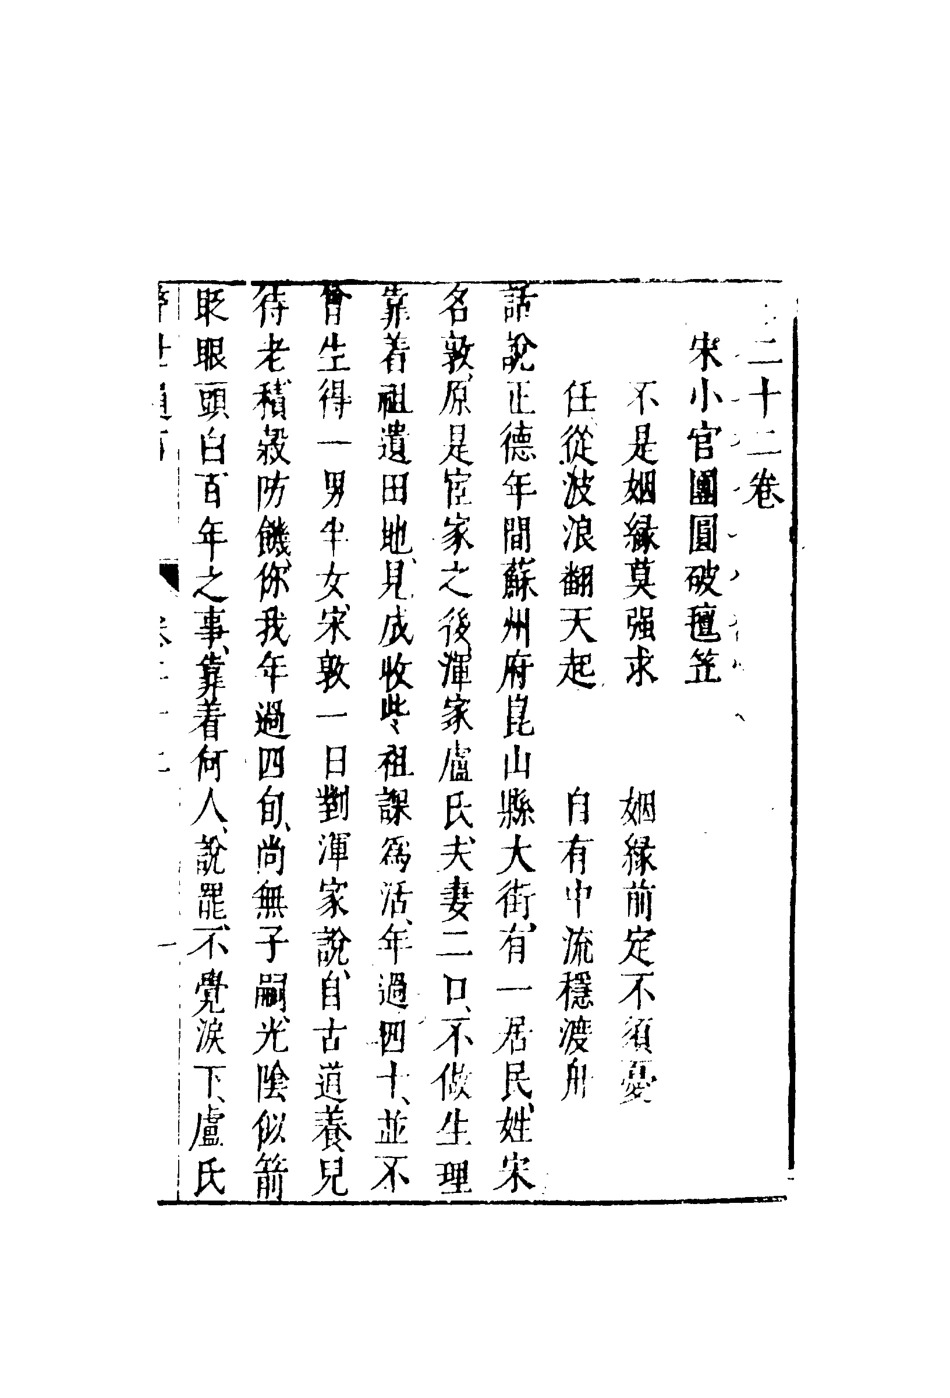 二十二卷
宋小官團圓破氊笠
不是姻緣莫强求　姻緣前定不須憂
任從波浪翻天起　自有中流穩渡舟
話說正德年間蘇州府崑山縣大街、有一居民、姓宋
名敦、原是宦家之後、渾家盧氏、夫妻二口、不做生理
靠着祖遺田地、見成收些祖課爲活、年過四十、並不
曾生得一男半女、宋敦一日對渾家說、自古道養兒
待老、積穀防饑、你我年過四旬、尚無子嗣、光陰似箭
眨眼頭白、百年之事、靠着何人、說罷、不覺淚下、盧氏
警世通言　卷二十二　一